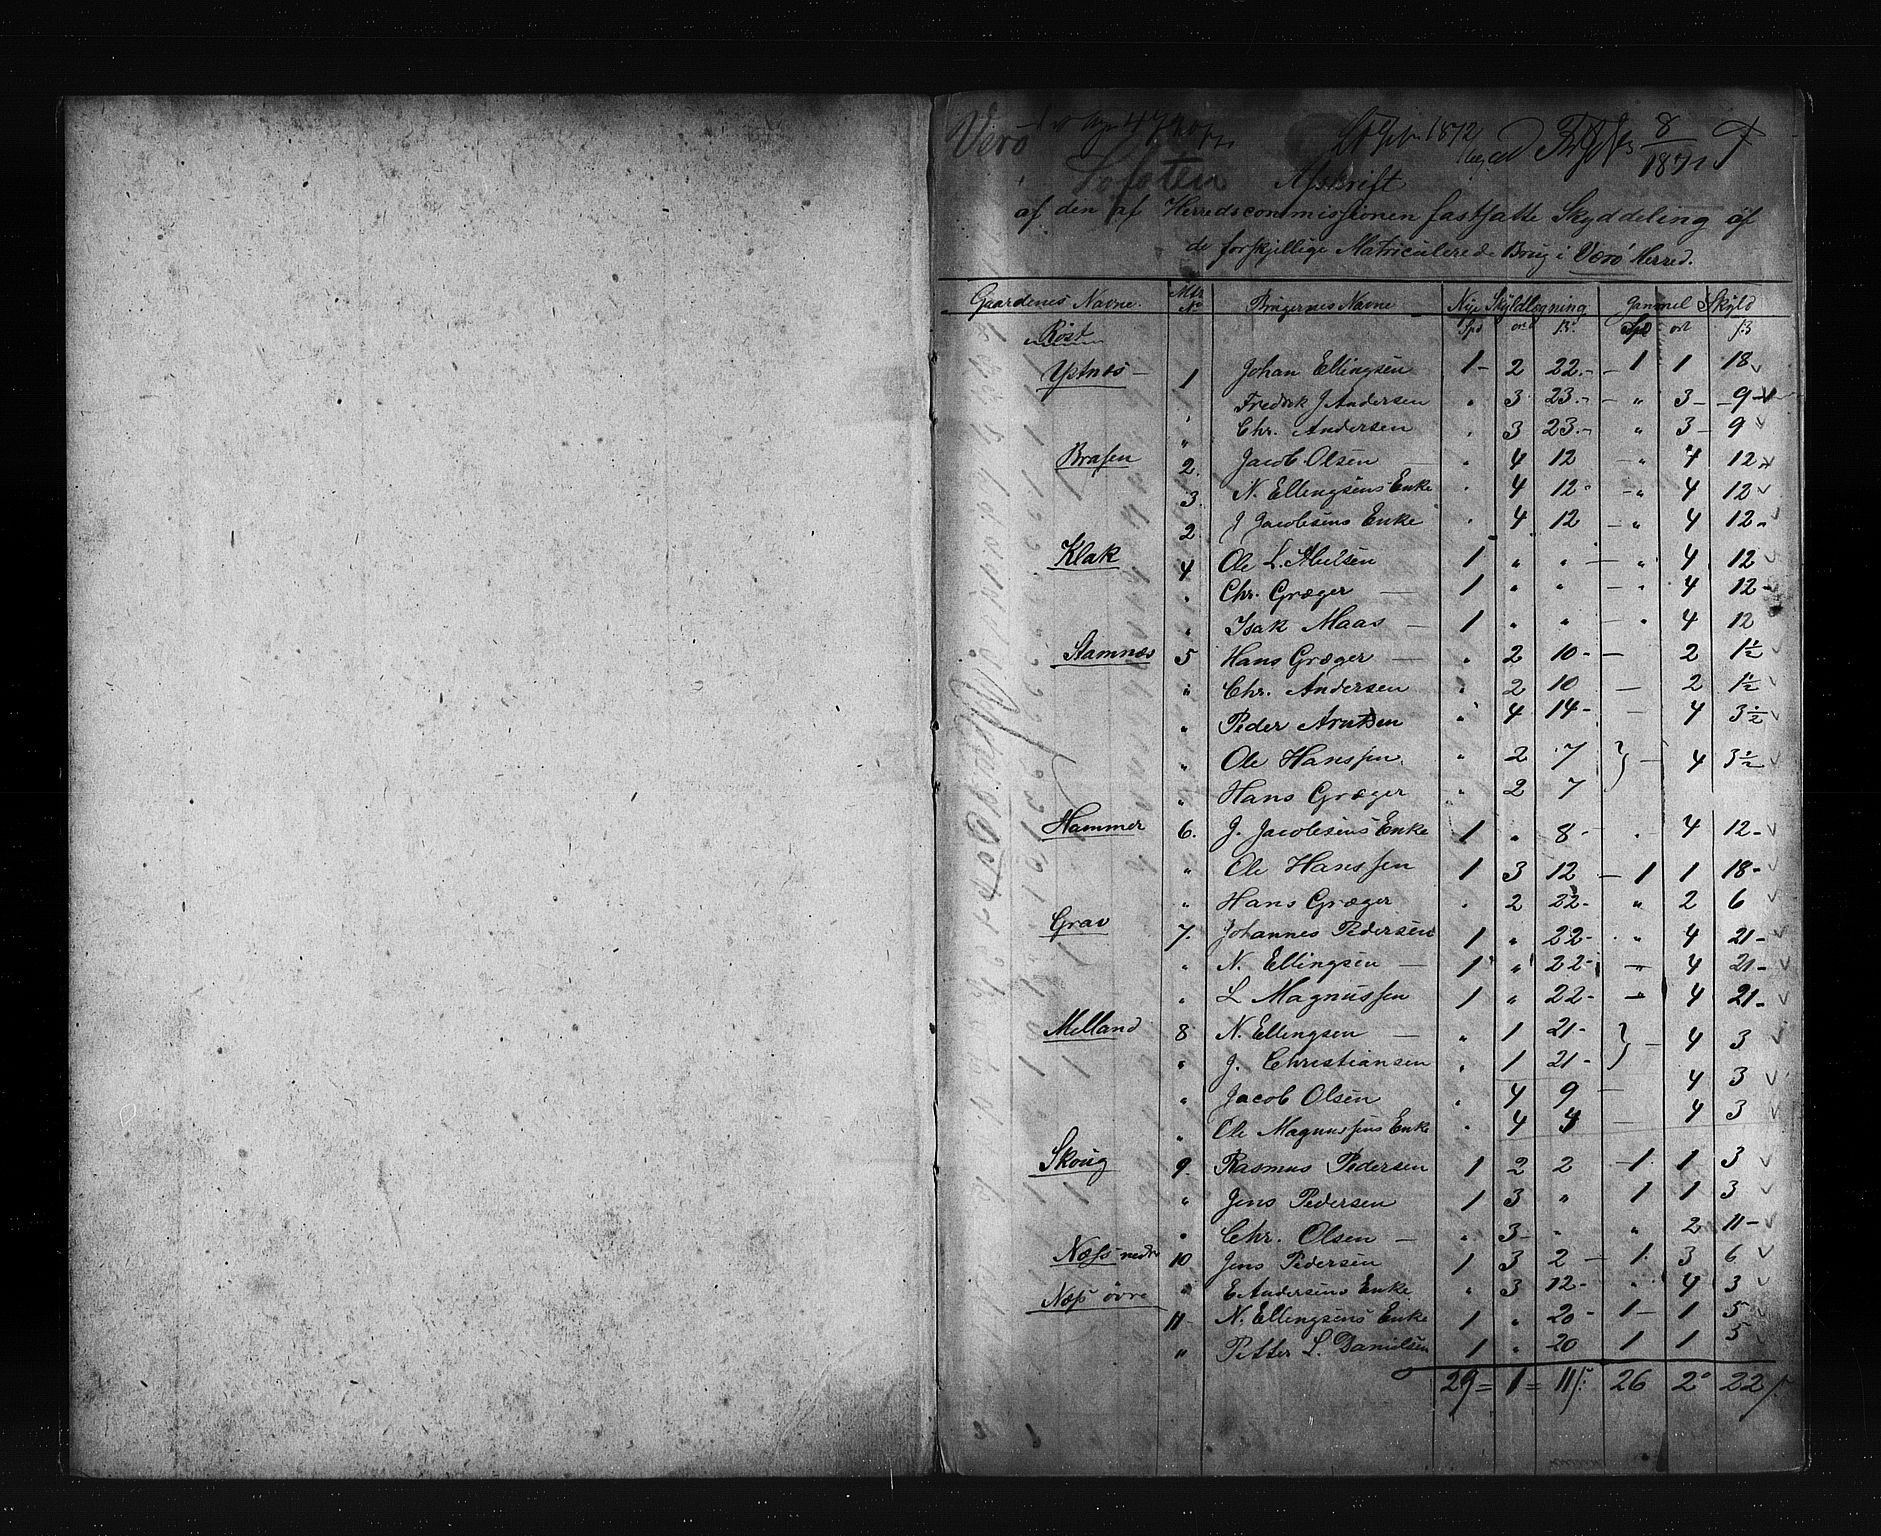 Værö
Lofoten
Afskrift
af den af Herredscommissionen fastsatte Skylddeling af
de forskjellige Matriculerede Brug i Værö Herred.
Gaardenes Navne. Mtr № Brugernes Navne Nye Skyldlægning Gammel Skyld
Röst Spd ort ß Spd ort ß
Ystnæs — 1 Johan Ellingsen 1 - 2 22 - 1 1 18
" Fredrik J Andersen " 3 23 - " 3 - 9
" Chr. Andersen " 3 23 - " 3 - 9
Brasen 2 Jacob Olsen " 4 12 - " 4 12
3 N. Ellingsens Enke " 4 12 - " 4 12
2 J Jacobsens Enke " 4 12 - " 4 12
Klak 4 Ole L. Nielsen 1 " " - " 4 12
" Chr. Græger 1 " " - " 4 12
" Isak Maas 1 " " - " 4 12
Stamnæs 5 Hans Græger " 2 10 - 2 1½
" Chr. Andersen " 2 10 - 2 1½
" Peder Arntsen " 4 14 - 4 3½
" Ole Hanssen " 2 7 } - 4 3½
" Hans Græger " 2 7
Hammer 6. J. Jacobsens Enke 1 " 8 - " 4 12 -
" Ole Hanssen 1 3 12 - 1 1 18 -
" Hans Græger " 2 22 - " 2 6
Grav 7. Johannes Pedersen 1 " 22 - " 4 21 -
" N. Ellingsen 1 " 22 - 4 21 -
" L Magnussen 1 " 22 - 4 21 -
Melland 8 N. Ellingsen " 1 21 - } - 4 3
" J. Christiansen " 1 21 -
" Jacob Olsen " 4 9 - 4 3
" Ole Magnussens Enke " 4 4 - 4 3
Skoug 9. Rasmus Pedersen 1 2 2 - 1 1 3
" Jens Pedersen 1 3 " 1 1 3
" Chr. Olsen " 3 - " " 2 11 -
Næss nedre 10 Jens Pedersen 1 3 2 - 1 3 6
" E Andersens Enke " 3 12 - " 4 3
Næss övre 11 - N. Ellingsens Enke 1 " 20 - 1 - 1 5
" Petter L. Danielsen 1 " 20 1 1 5
29 = 1 = 11 ß 26 2 22 ß